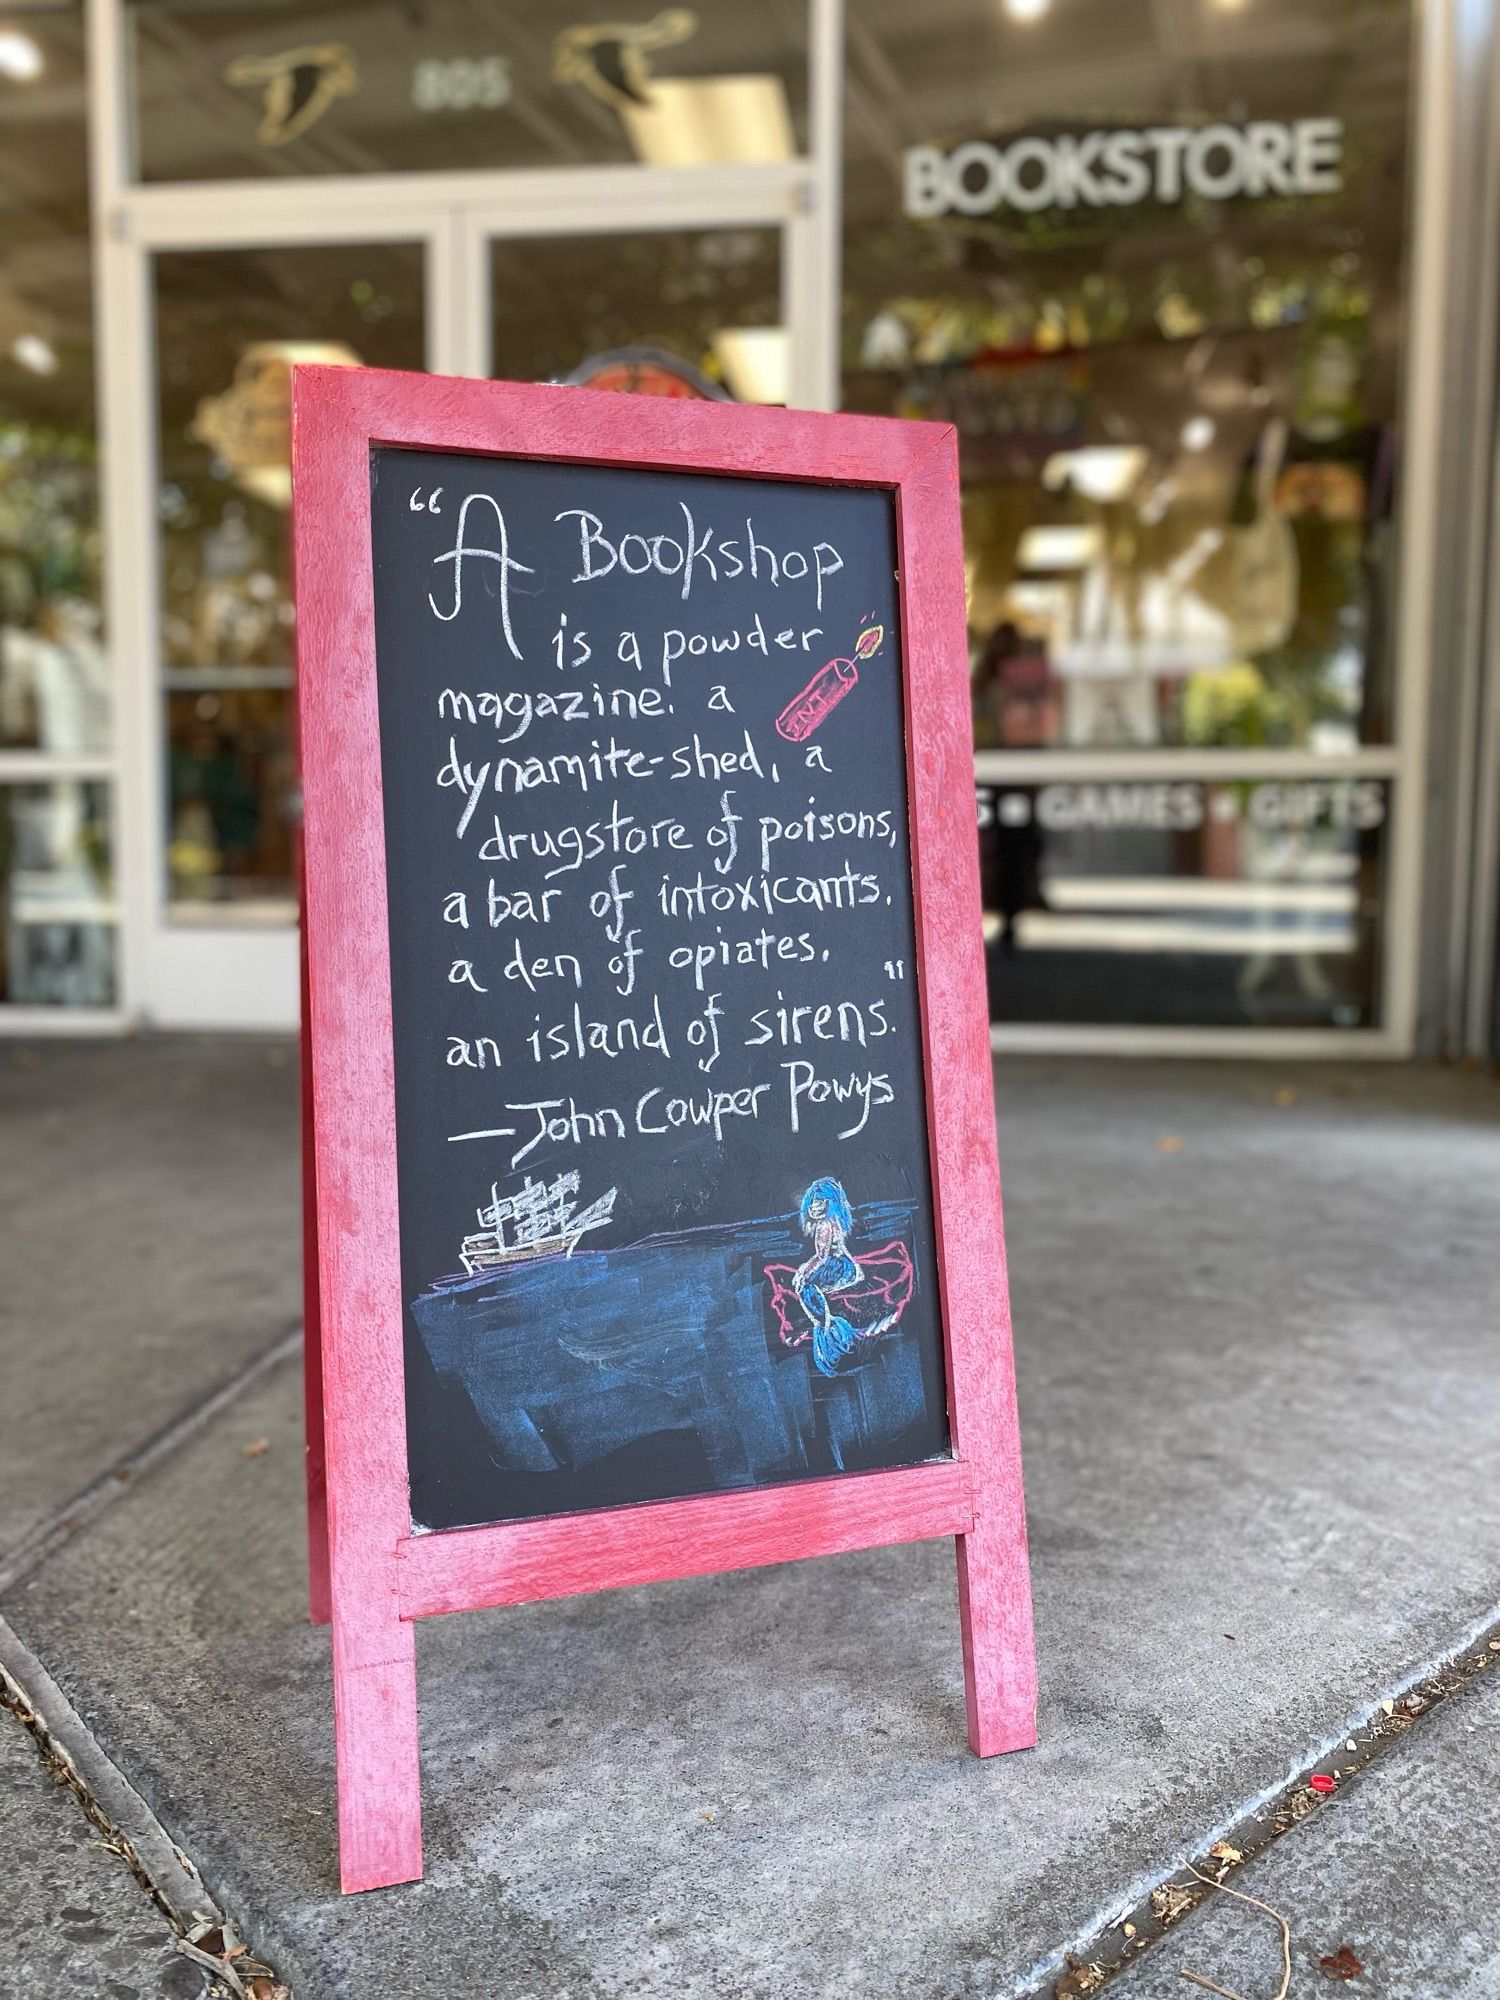 805
BOOKSTORE
“A Bookshop
is a powder
magazine. a
TNT
dynamite-shed, a
drugstore of poisons,
a bar of intoxicants.
a den of opiates.
an island of sirens."
—John Cowper Powys
S ▪ GAMES ▪ GIFTS